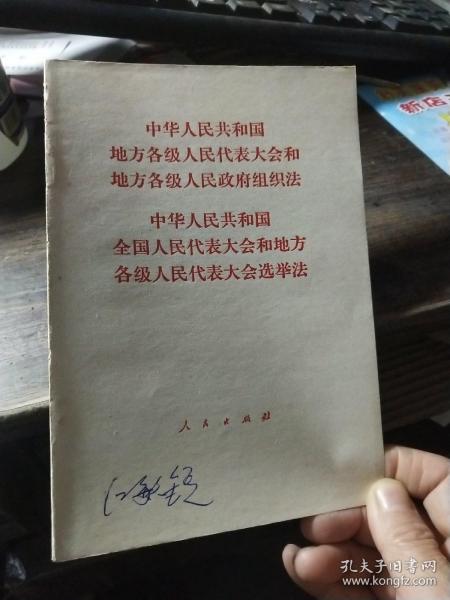 中华人民共和国
地方各级人民代表大会和
地方各级人民政府组织法
中华人民共和国
全国人民代表大会和地方
各级人民代表大会选举法
人民出版社
新店
孔夫子旧书网
www.kongfz.com